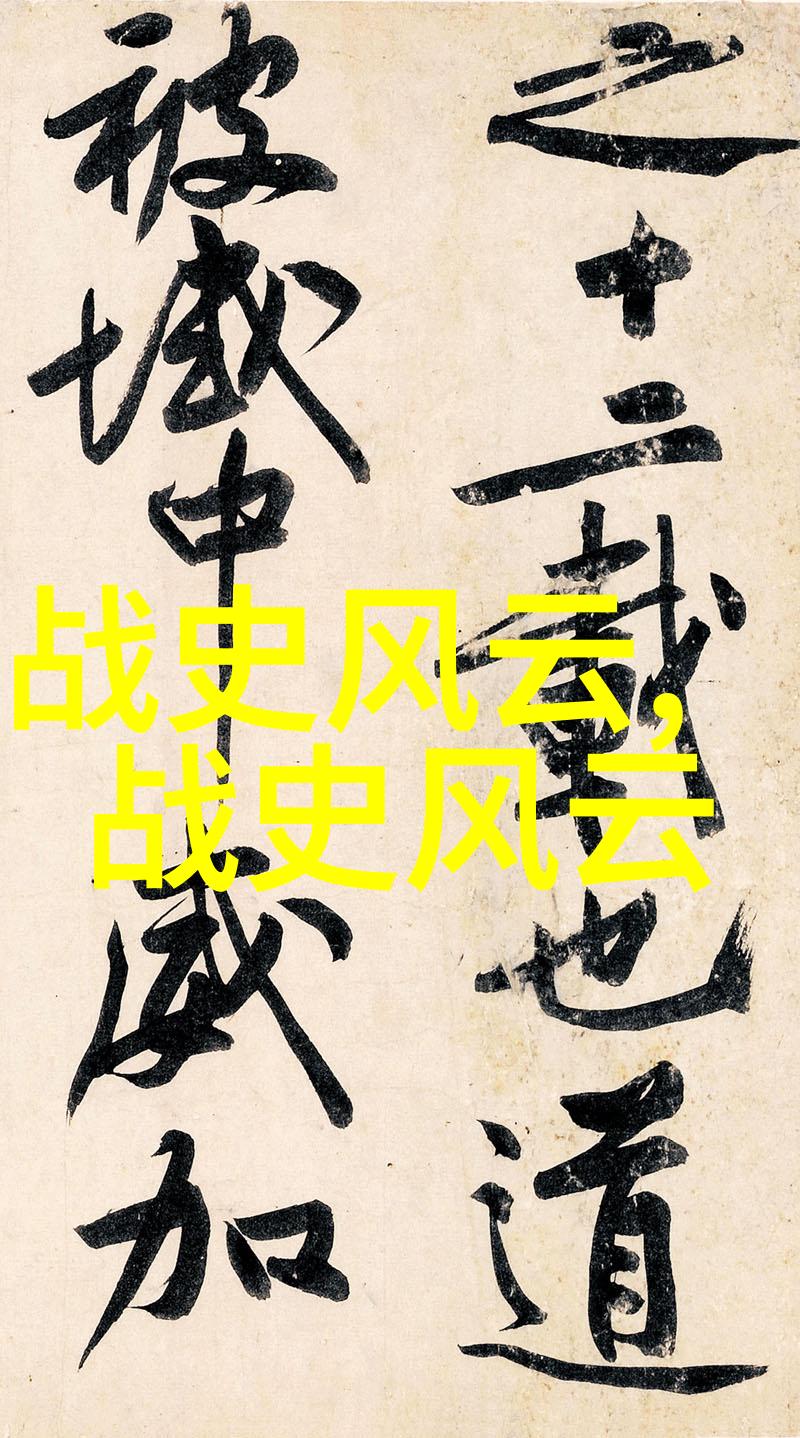 之十二載也道
被域中威加
战史风云,
战史风云